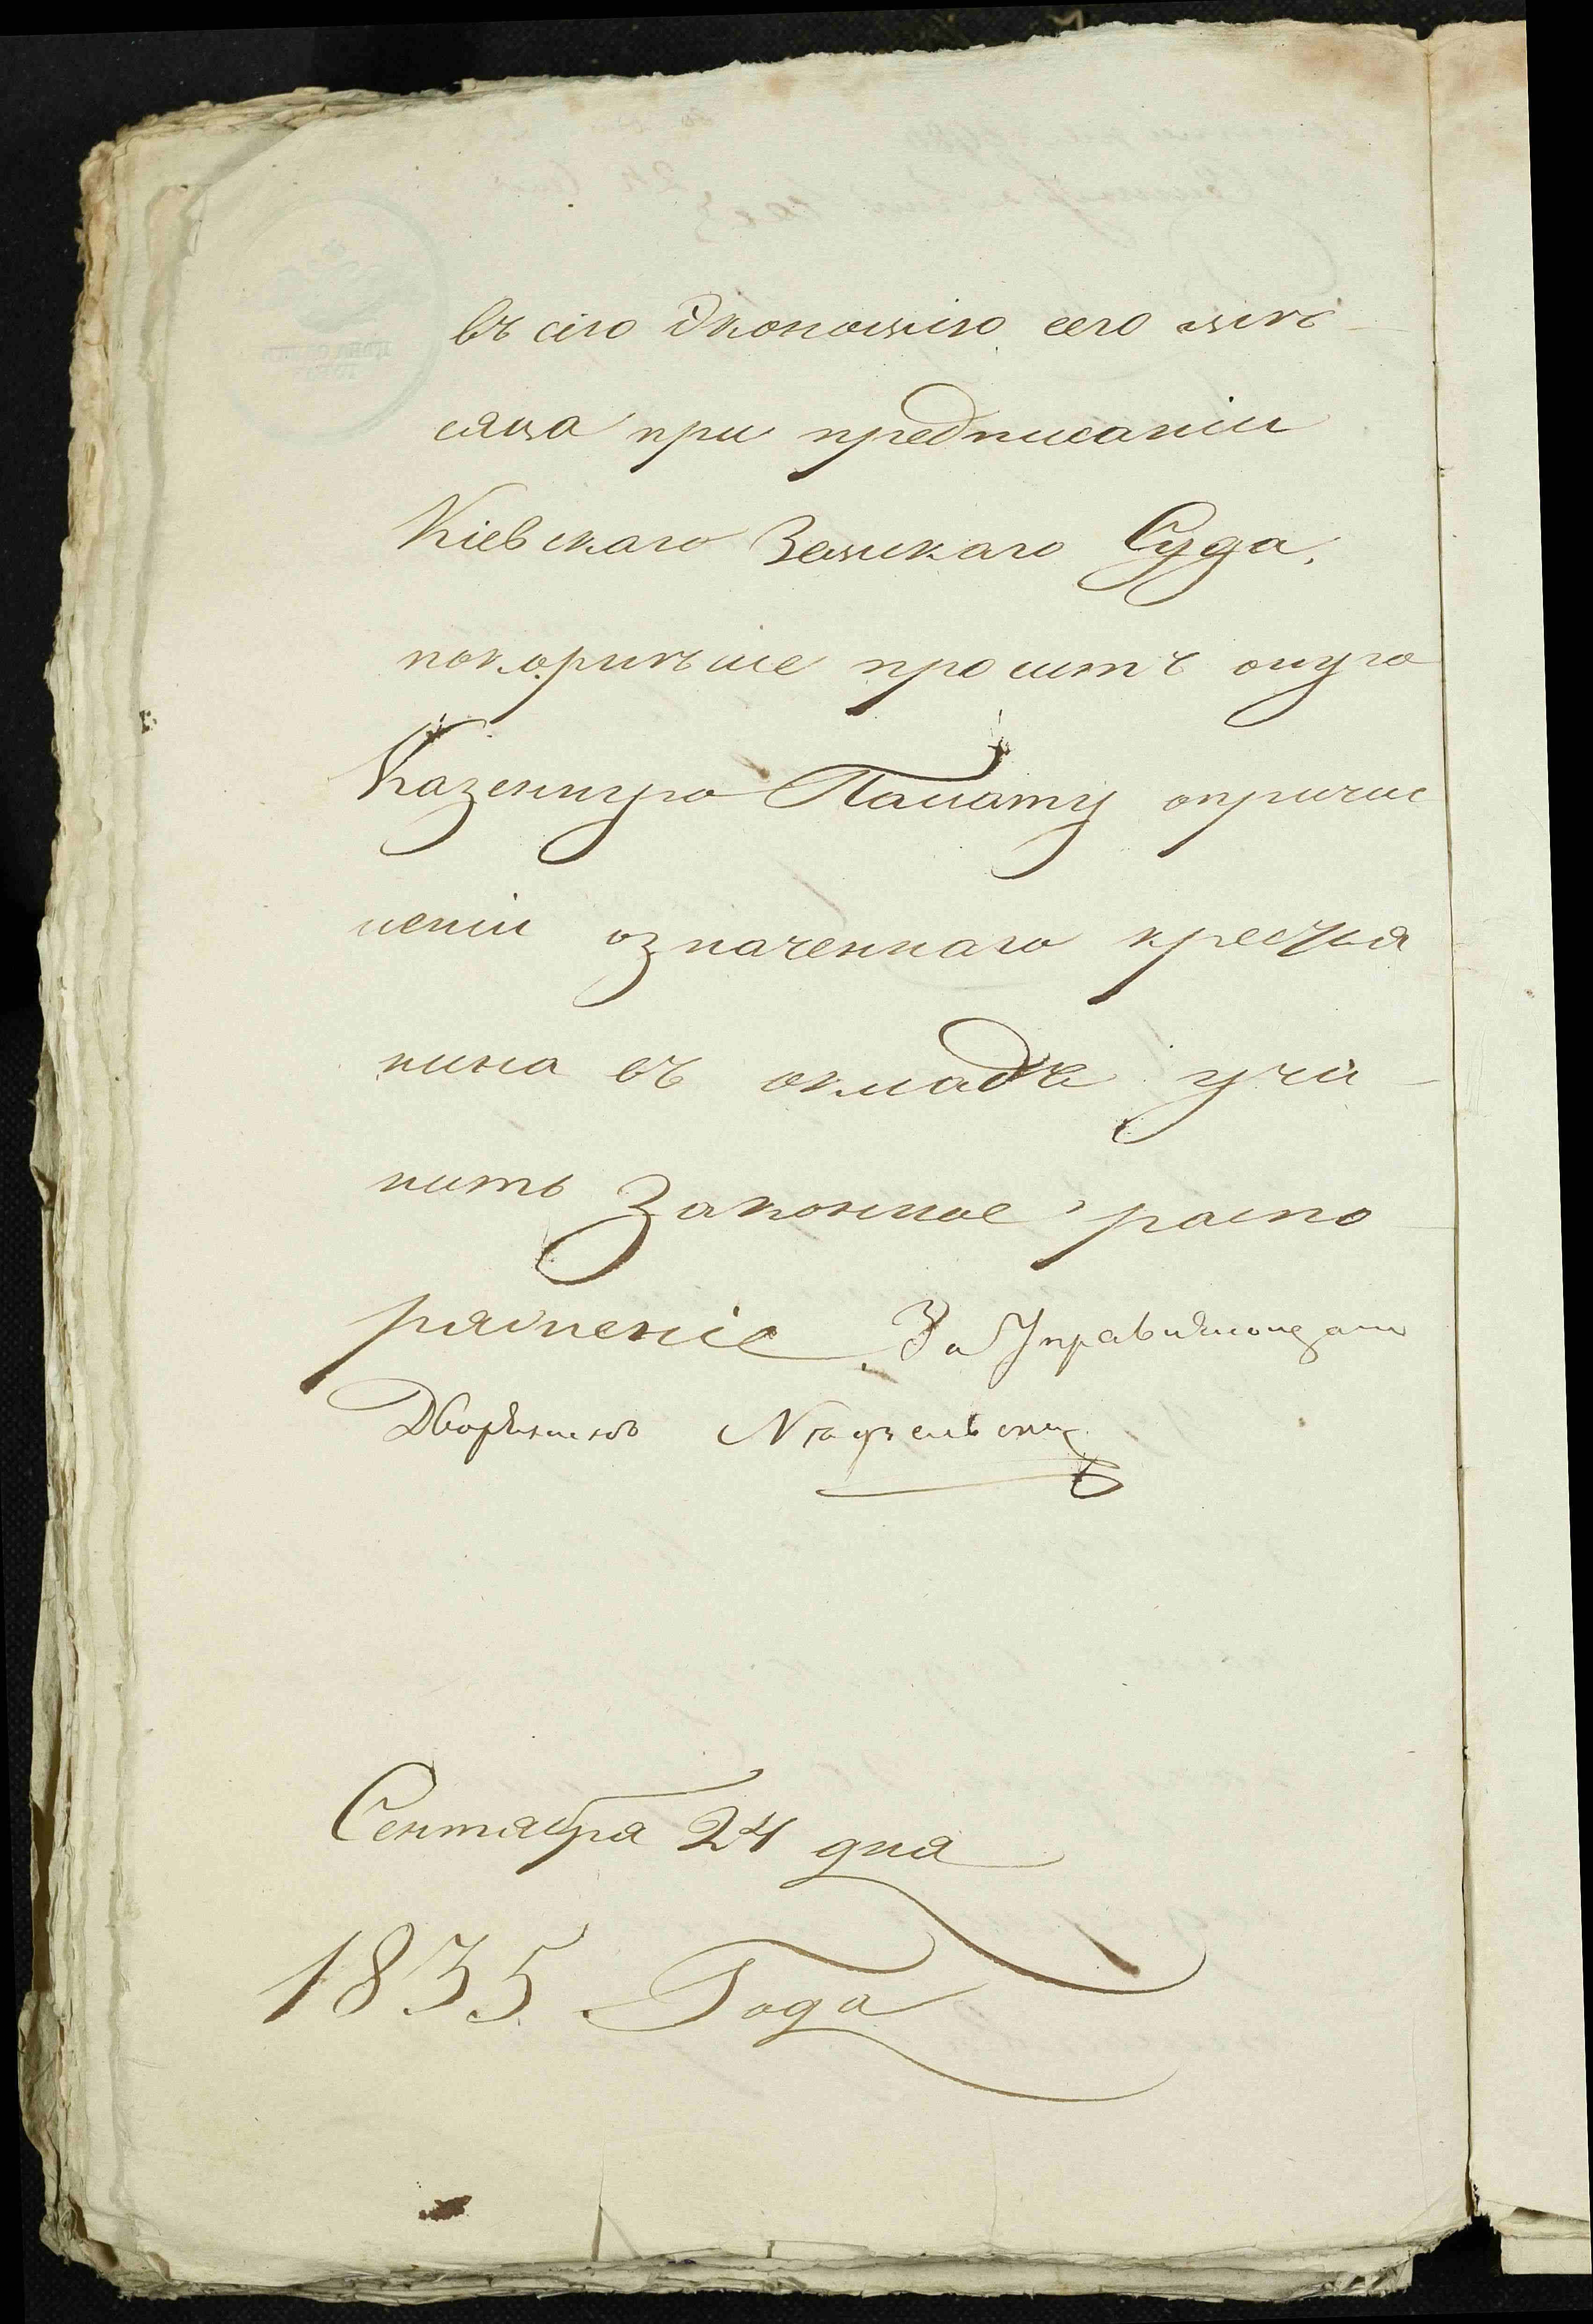 въ сію Экономію сего мѣ-
сяца при предписаніи
Кіевскаго Земскаго Суда,
покорнѣйше проситъ оную
Казенную Палату опричис
леніи означеннаго крестья
нина въ окладѣ учи-
нить Законное распо
ряженіе За Управляющаго
Дворянинъ
Сентября 24 дня
1835 Года